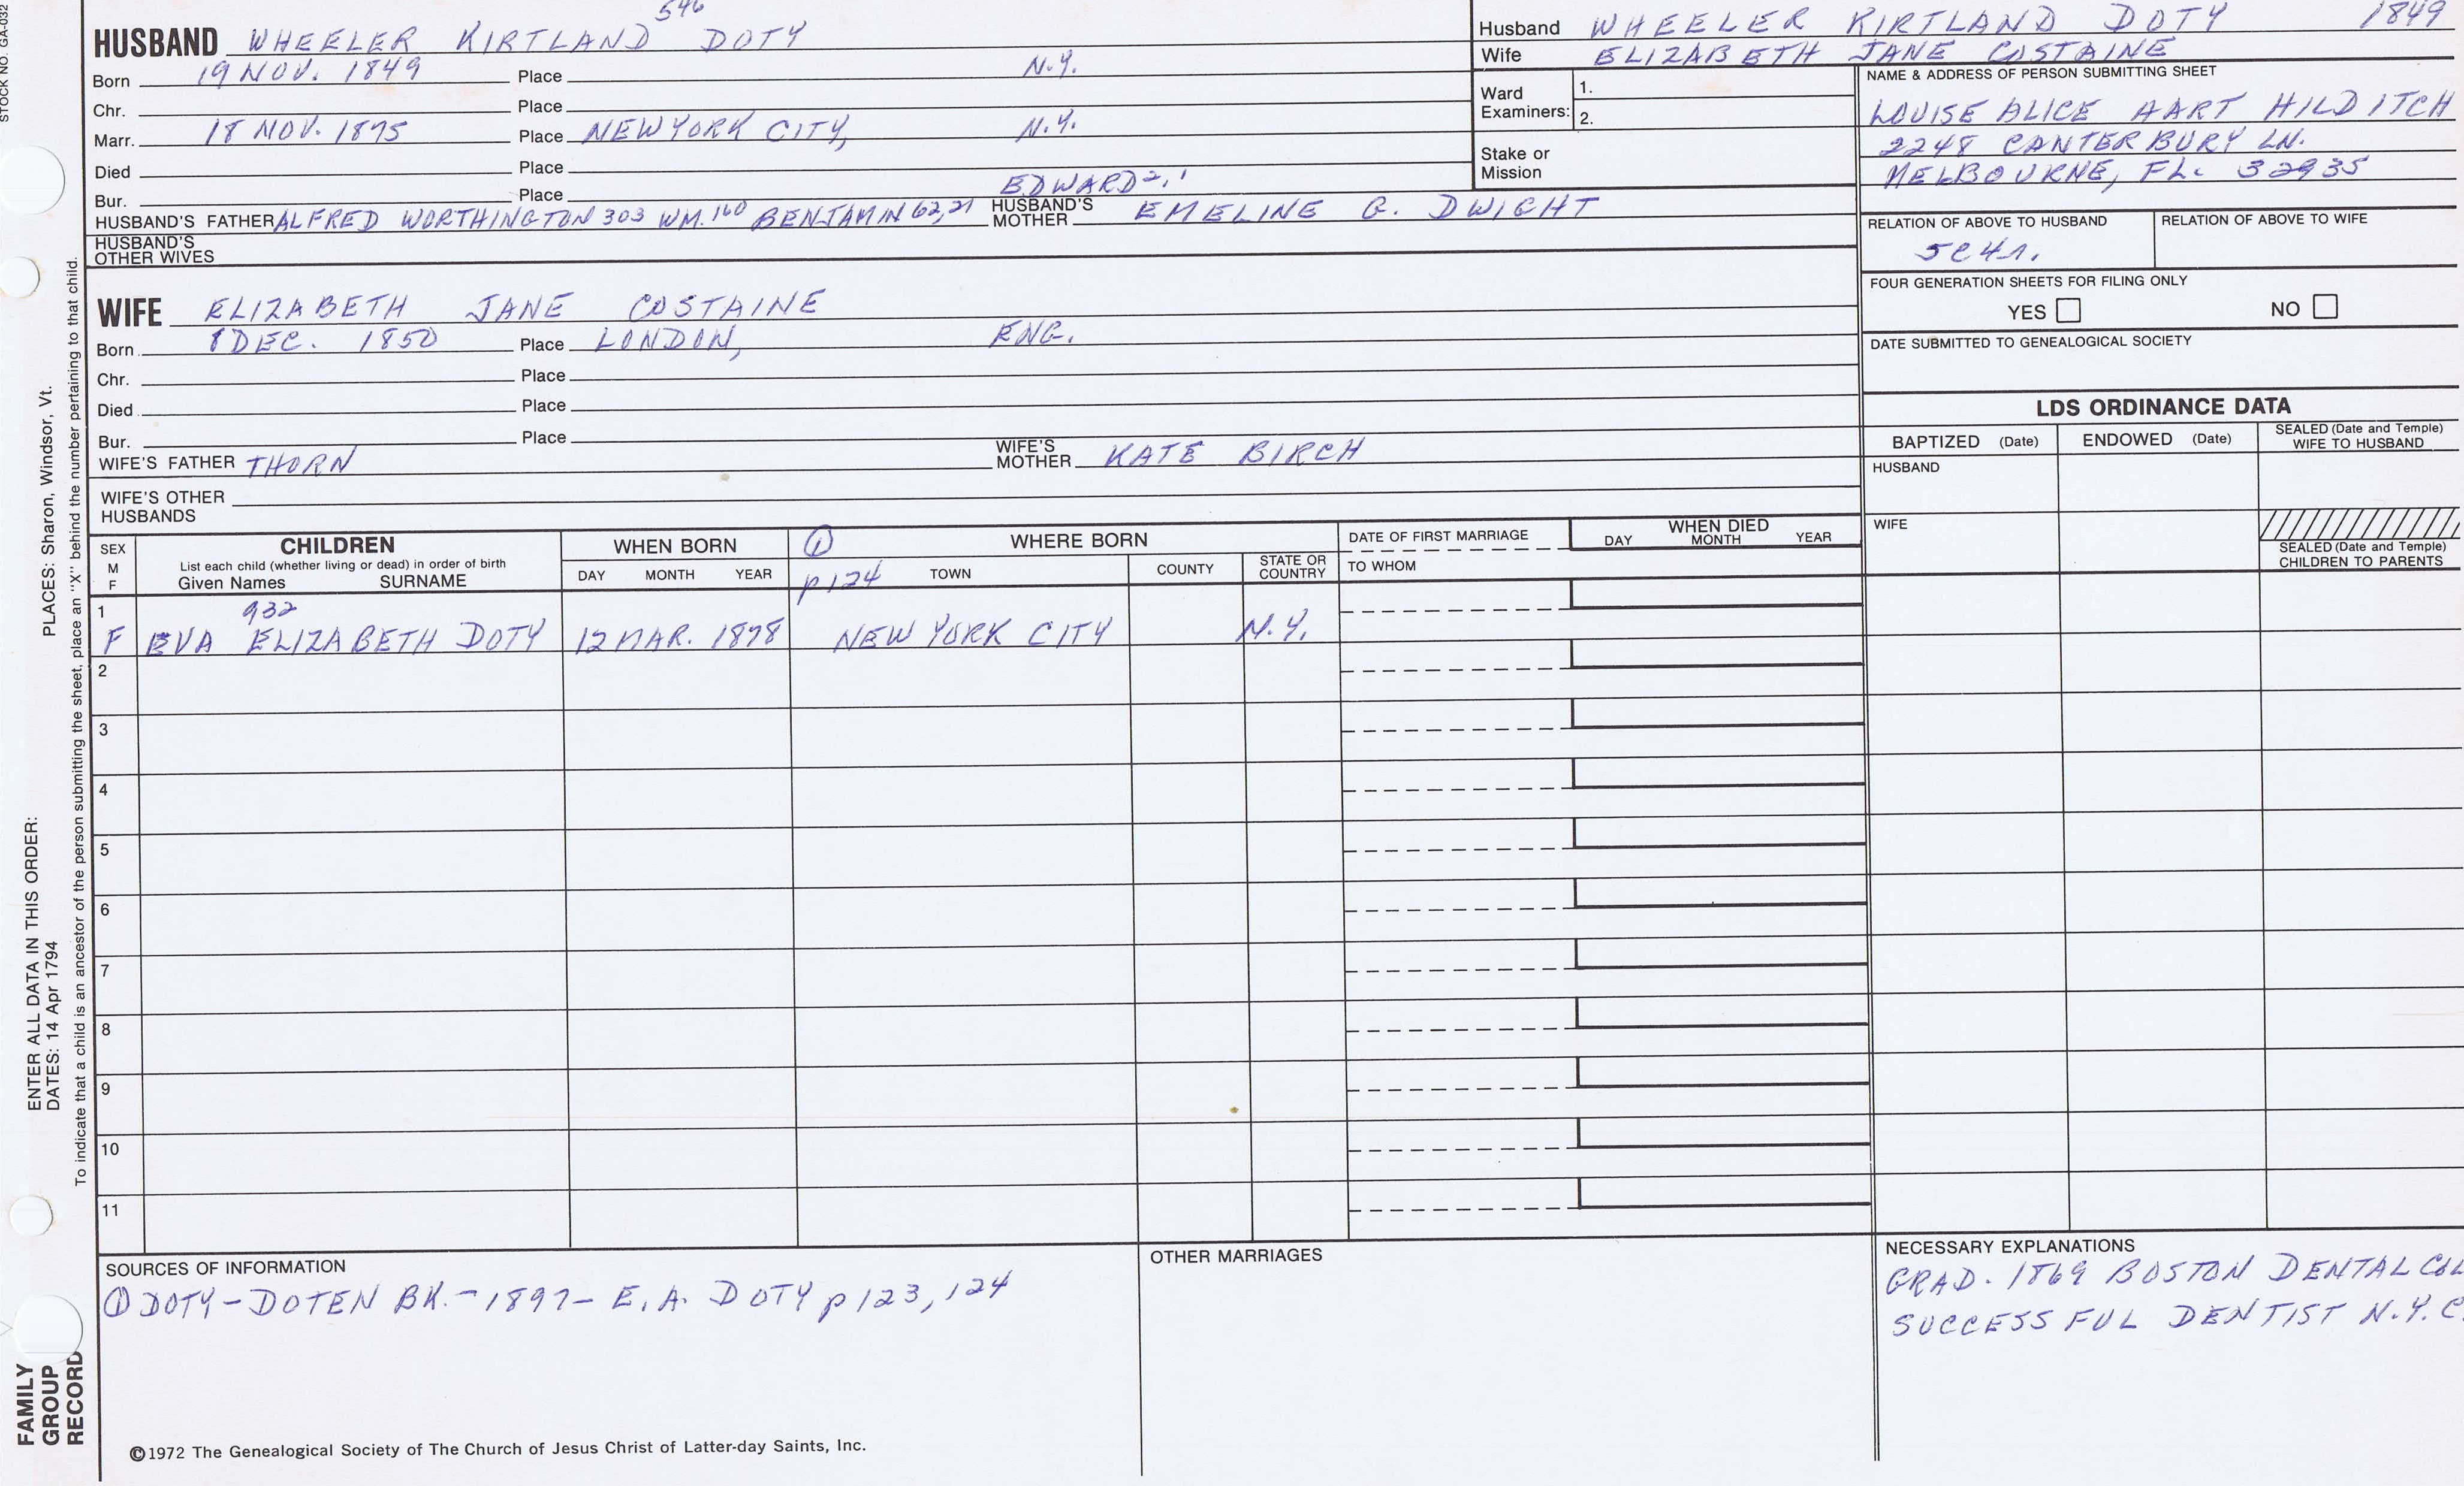 546
HUSBAND WHEELER KIRTLAND DOTY
Born 19 NOV. 1849 Place N.Y.
Chr. Place
Marr. 18 NOV. 1875 Place NEW YORK CITY, N.Y.
Died Place
Bur. Place
EDWARD 2, 1
HUSBAND'S FATHER ALFRED WORTHINGTON 303 WM. 160 BENJAMIN 62, 21 HUSBAND'S MOTHER EMELINE G. DWIGHT
HUSBAND'S OTHER WIVES
WIFE ELIZABETH JANE COSTAINE
Born 8 DEC. 1850 Place LONDON, ENG.
Chr. Place
Died Place
Bur. Place
WIFE'S FATHER THORN WIFE'S MOTHER KATE BIRCH
WIFE'S OTHER HUSBANDS
Husband WHEELER KIRTLAND DOTY 1849
Wife ELIZABETH JANE COSTAINE
Ward Examiners: 1.
2.
Stake or Mission
NAME & ADDRESS OF PERSON SUBMITTING SHEET
LOUISE ALICE HART HILDITCH
2248 CANTERBURY LN.
MELBOURNE, FL. 32935
RELATION OF ABOVE TO HUSBAND RELATION OF ABOVE TO WIFE
5C4r.
FOUR GENERATION SHEETS FOR FILING ONLY
YES NO
DATE SUBMITTED TO GENEALOGICAL SOCIETY
LDS ORDINANCE DATA
BAPTIZED (Date) ENDOWED (Date) SEALED (Date and Temple) WIFE TO HUSBAND
HUSBAND
WIFE
SEALED (Date and Temple) CHILDREN TO PARENTS
SEX M F
CHILDREN
List each child (whether living or dead) in order of birth
Given Names SURNAME
WHEN BORN
DAY MONTH YEAR
① WHERE BORN
p 124 TOWN COUNTY STATE OR COUNTRY
DATE OF FIRST MARRIAGE
TO WHOM
WHEN DIED
DAY MONTH YEAR
1 932
F EVA ELIZABETH DOTY 12 MAR. 1878 NEW YORK CITY N.Y.
2
3
4
5
6
7
8
9
10
11
SOURCES OF INFORMATION
① DOTY-DOTEN BK.-1897-E.A. DOTY p 123, 124
OTHER MARRIAGES
NECESSARY EXPLANATIONS
GRAD. 1869 BOSTON DENTAL COL
SUCCESSFUL DENTIST N.Y.C.
©1972 The Genealogical Society of The Church of Jesus Christ of Latter-day Saints, Inc.
STOCK NO. GA-032
ENTER ALL DATA IN THIS ORDER:
DATES: 14 Apr 1794 PLACES: Sharon, Windsor, Vt.
To indicate that a child is an ancestor of the person submitting the sheet, place an "X" behind the number pertaining to that child.
FAMILY
GROUP
RECORD